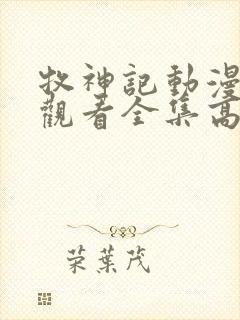 牧神記動漫
觀看全集高
荣葉茂